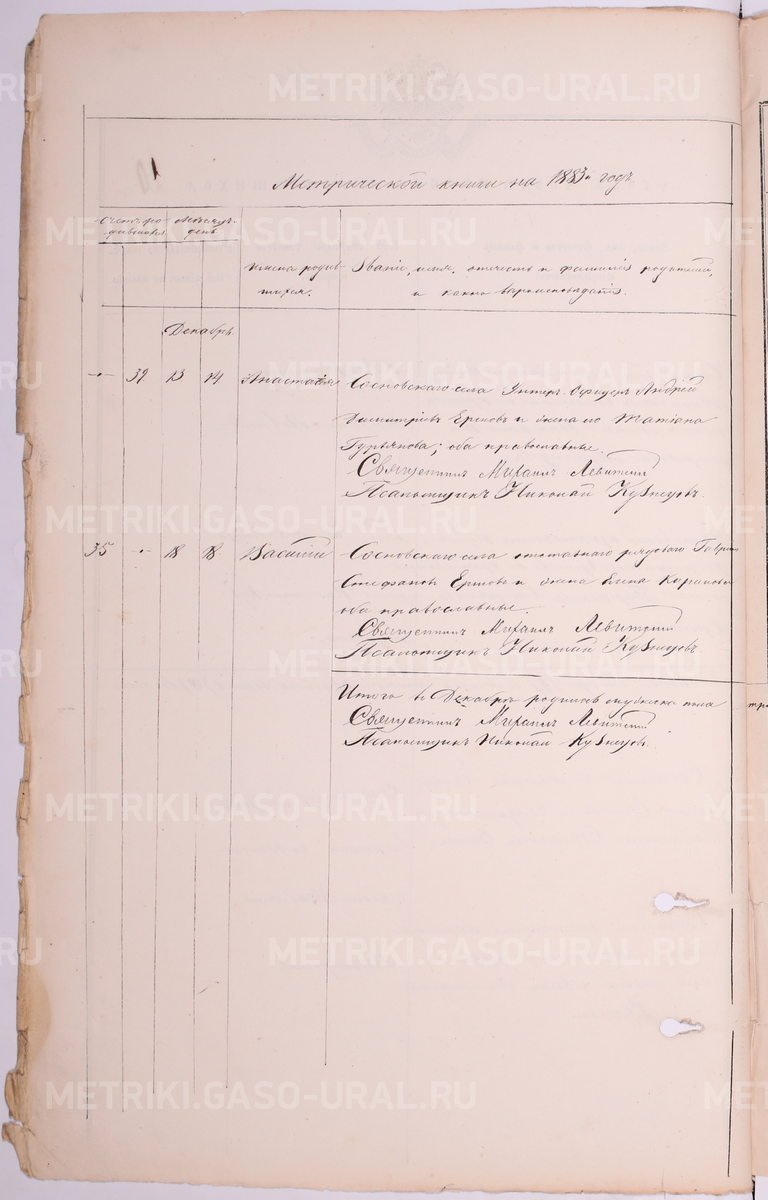 Метрической книги на 1883й годъ
Счетъ ро-
дившихся
Месяцъ.
день
Имена родив-
шихся.
Званiе, имя, отчество и фамилiя родителей,
и какого вероисповеданiя.
Декабрь
39 13 14 Анастасiя Сосновскаго села Унтеръ-Офицеръ Андрей
Димитрiевъ Ершовъ и жена его Татiана
Гурьянова; оба православные.
Священникъ Михаилъ Левитскiй
Псаломщикъ Николай Кузнецовъ.
35 18 18 Василiй Сосновскаго села отставнаго рядоваго
Стефановъ Ершовъ и жена Елена
оба православные.
Священникъ Михаилъ Левитскiй
Псаломщикъ Николай Кузнецовъ.
Итого въ Декабре родилось мужеска пола
Священникъ Михаилъ Левитскiй
Псаломщикъ Николай Кузнецовъ.
METRIKI.GASO-URAL.RU